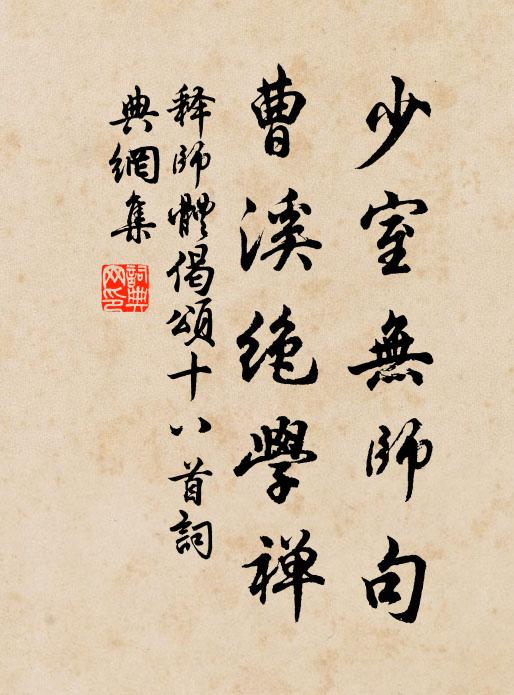 少室無師句
曹溪絶學禅
释師體偈頌十八首詞
典網集
詞典
网印